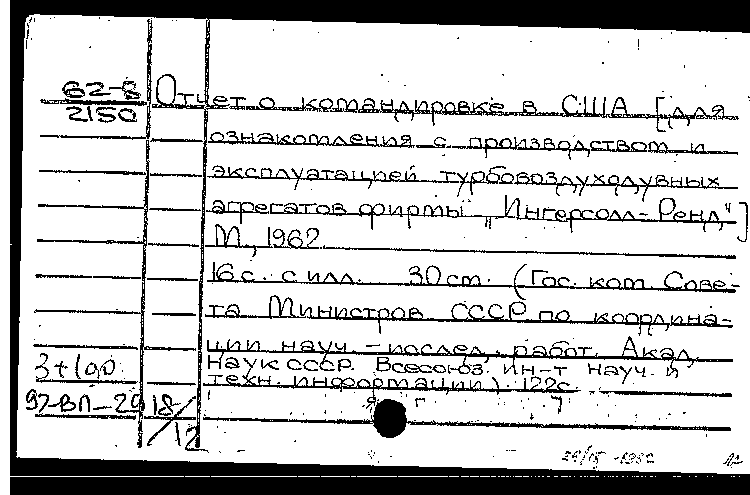 62-8
2150
Отчет о командировке в США [для
ознакомления с производством и
эксплуатацией турбовоздуходувных
агрегатов фирмы „Ингерсолл-Ренд"]
М., 1962.
16 с. с илл. 30 см. (Гос. ком. Сове-
та Министров СССР по координа-
ции науч.-исслед. работ. Акад.
наук СССР. Всесоюз. ин-т науч. и
техн. информации). 122с.
3+1
92-ВП-29 18/12